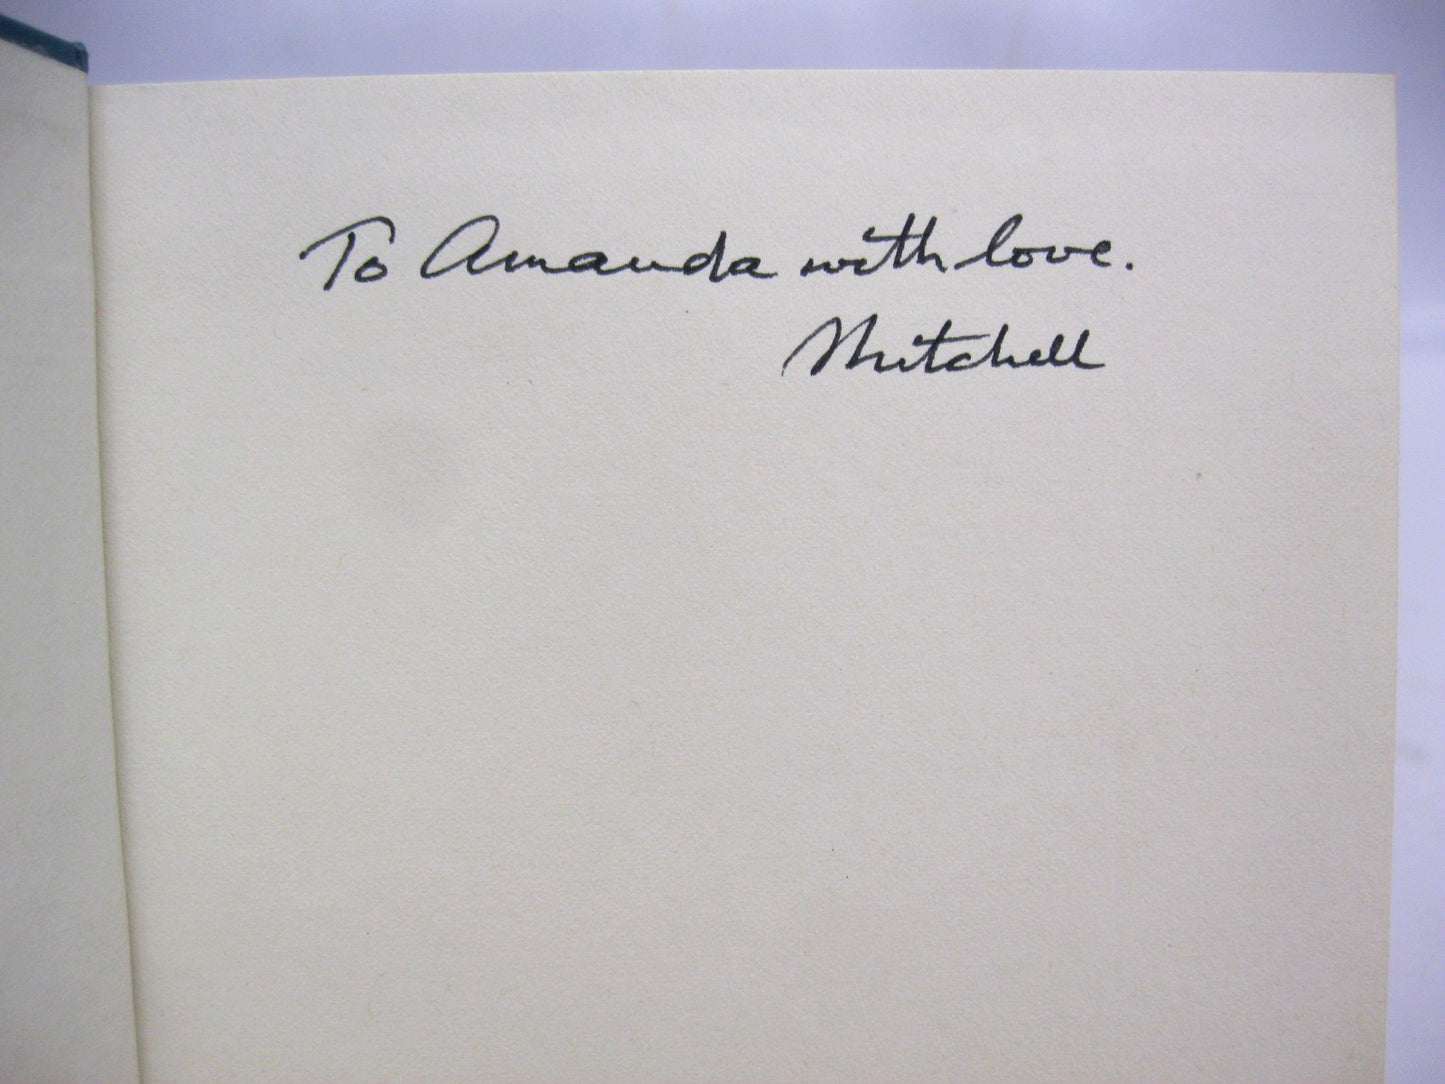 To Amanda with love.
Mitchell